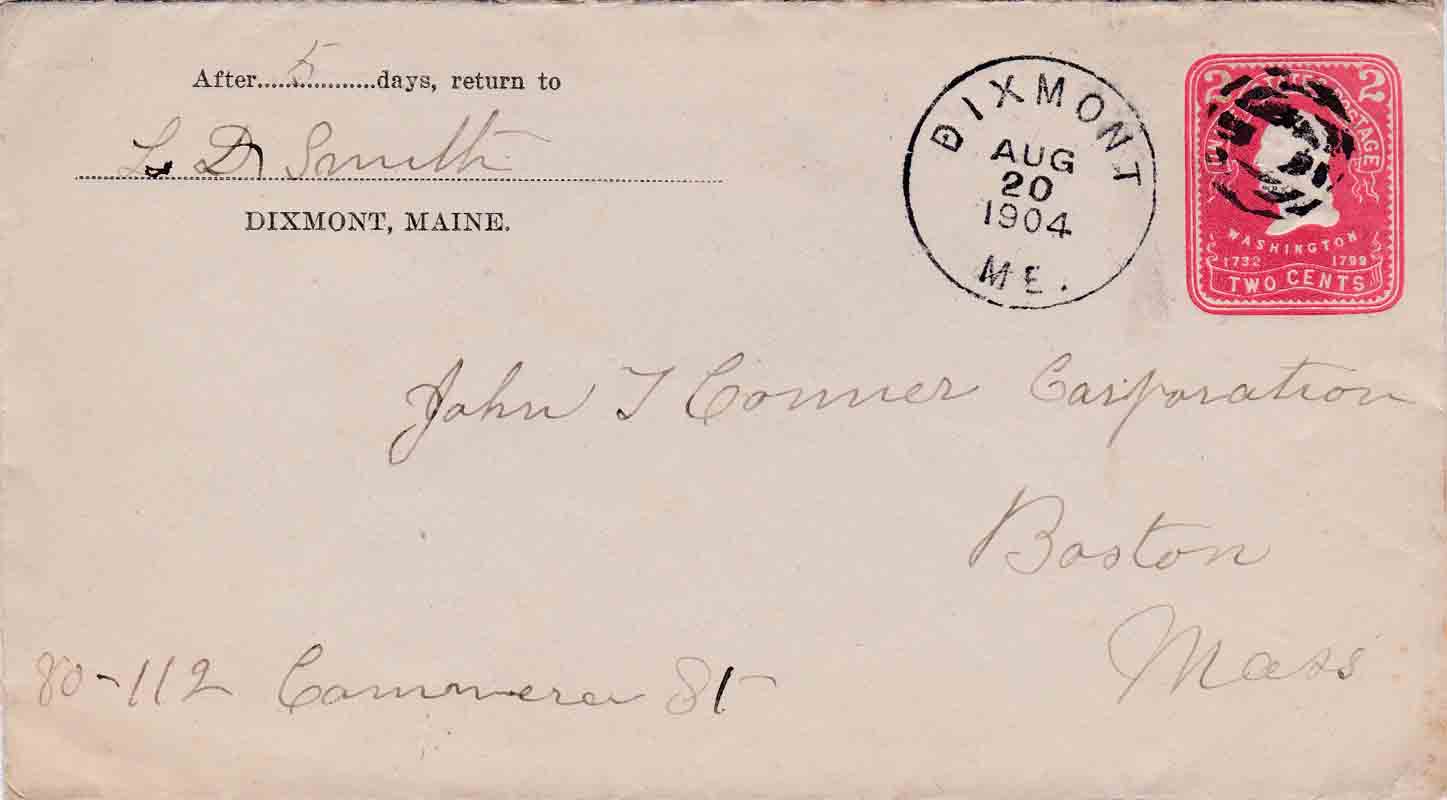 After.....5..........days, return to
L D Smith
DIXMONT, MAINE.
DIXMONT
AUG
20
1904
ME.
2 2
UNITED STATES POSTAGE
WASHINGTON
1732 1799
TWO CENTS
John T Conner Corporation
Boston
Mass
80-112 Commerce St